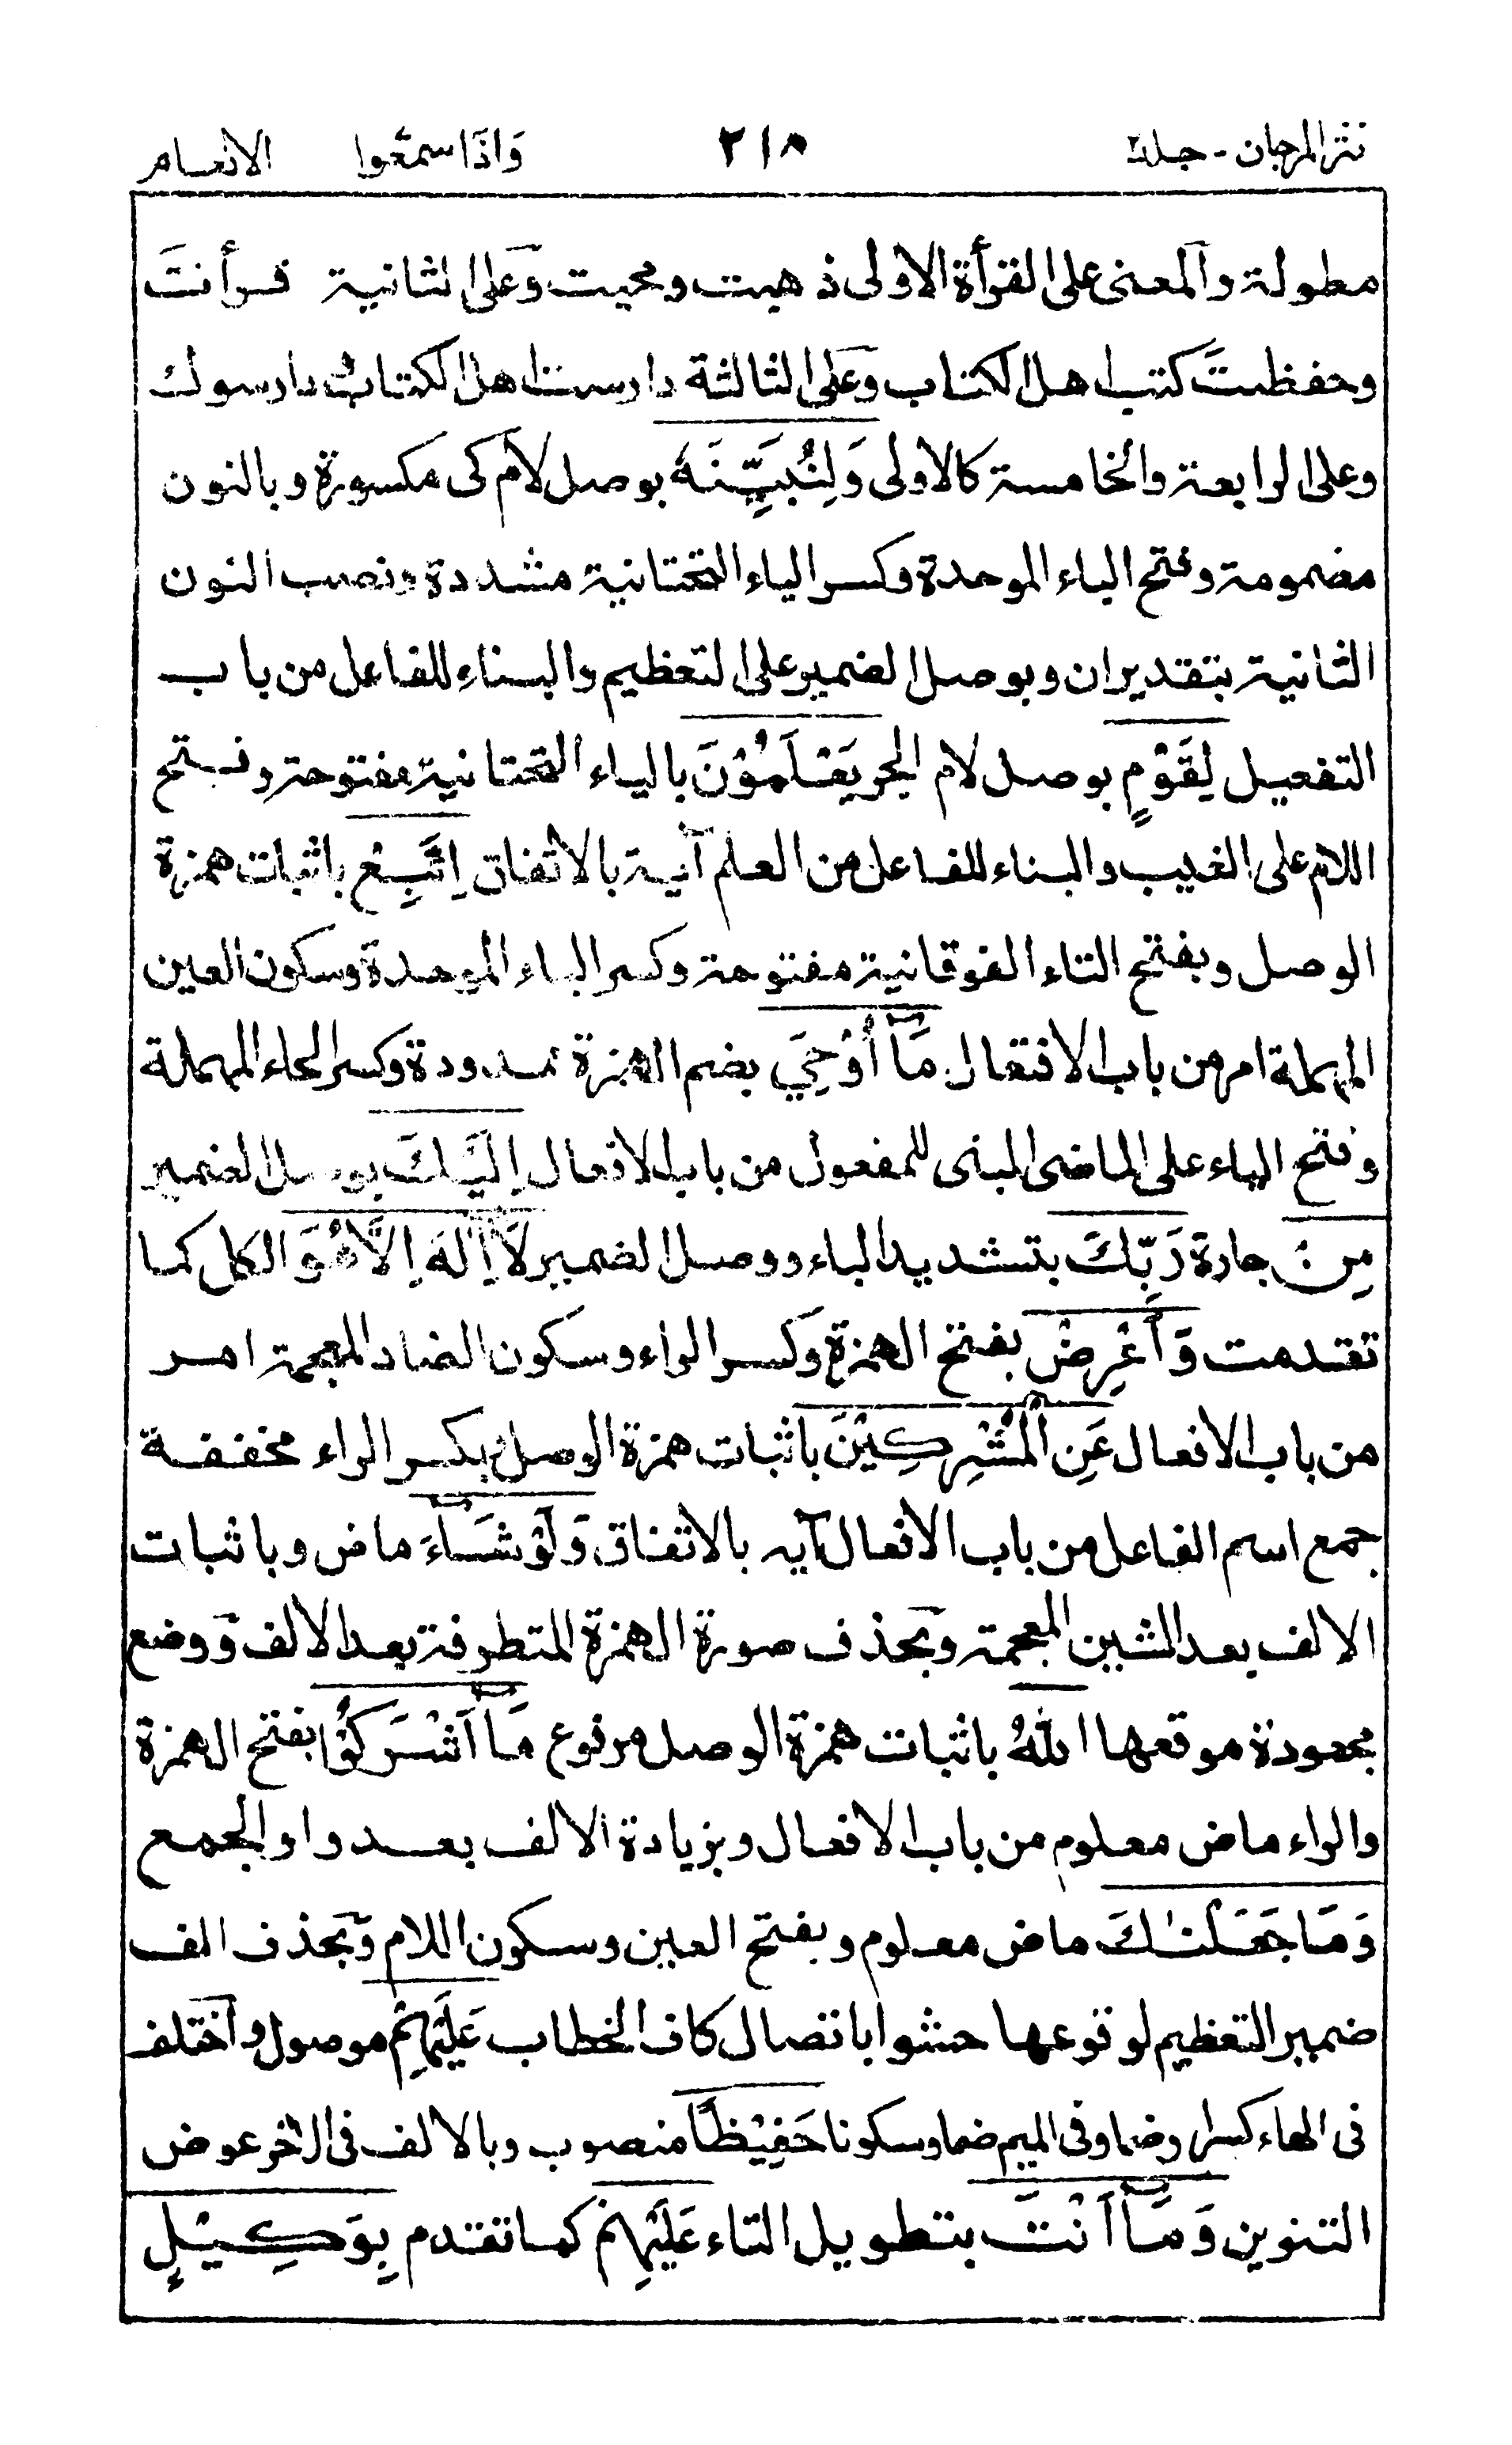 نثر المرجان - جلد ٢١٨ وَاِذَا سمعُوا الانعام
مطولة والمعنى على القرأة الاولى ذهبت ومحيت وعلى الثانية قرأنتَ
وحفظتَ كتب اهل الكتاب وعلى الثالثة دارست اهل الكتاب دارسوك
وعلى الرابعة والخامسة كالاولى وَلِنُبَيِّنَهٗ بوصل لام كى مكسورة وبالنون
مضمومة وفتح الباء الموحدة وكسر الياء التحتانية مشددة ونصب النون
الثانية بتقديران وبوصل الضمير على التعظيم والبناءِ للفاعل من باب
التفعيل لِقَوْمٍ بوصل لام الجر يَعْلَمُوْنَ بالياء التحتانية مفتوحة وفتح
اللام على الغيب والبناء للفاعل من العلم آية بالاتفاق اِتَّبِعْ باثبات همزة
الوصل وبفتح التاء الفوقانية مفتوحة وكسر الباء الموحدة وسكون العين
المهملة امر من باب الافتعال مَآ اُوْحِيَ بضم الهمزة ممدودة وكسر الحاء المهملة
وفتح الياء على الماضى المبنى للمفعول من باب الافعال اِلَيْكَ بوصل الضمير
مِنْ جارة رَبِّكَ بتشديد الباء ووصل الضمير لَآ اِلٰهَ اِلَّا هُوَ الكل كما
تقدمت وَاَعْرِضْ بفتح الهمزة وكسر الراء وسكون الضاد المعجمة امر
من باب الافعال عَنِ الْمُشْرِكِيْنَ باثبات همزة الوصل وبكسر الراء مخففة
جمع اسم الفاعل من باب الافعال آيه بالاتفاق وَلَوْ شَآءَ ماض وباثبات
الالف بعد الشين المعجمة وبحذف صورة الهمزة المتطرفة بعد الالف ووضع
مجعودة موقعها اللهُ باثبات همزة الوصل مرفوع مَآ اَشْرَكُوْا بفتح الهمزة
والراء ماض معلوم من باب الافعال وبزيادة الالف بعد واو الجمع
وَمَا جَعَلْنٰكَ ماض معلوم وبفتح العين وسكون اللام وبحذف الف
ضمير التعظيم لوقوعها حشوا باتصال كاف الخطاب عَلَيْهِمْ موصول واختلف
فى الهاء كسرا وضما وفى الميم ضما وسكونا حَفِيْظًا منصوب وبالالف فى الاخر عوض
التنوين وَمَآ اَنْتَ بتطويل التاء عَلَيْهِمْ كما تقدم بِوَكِيْلٍ